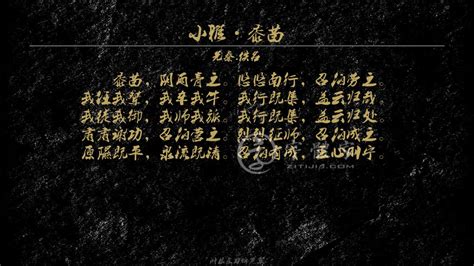 小雅·黍苗
先秦·佚名
黍苗，阴雨膏之。悠悠南行，召伯劳之。
我任我辇，我车我牛。我行既集，盖云归哉。
我徒我御，我师我旅。我行既集，盖云归处。
肃肃谢功，召伯营之。烈烈征师，召伯成之。
原隰既平，泉流既清。召伯有成，王心则宁。